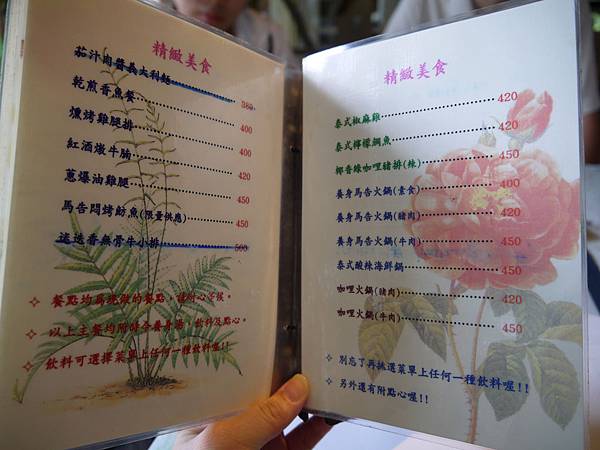 精緻美食
茄汁肉醬義大利麵 380
乾煎香魚餐 400
燻烤雞腿排 400
紅酒燉牛腩 450
蔥爆油雞腿 450
馬告悶烤魴魚(限量供應) 450
迷迭香無骨牛小排 500
✧ 餐點均為現做的餐點，請耐心等候。
✧ 以上主餐均附時令養身湯，飲料及點心。
✧ 飲料可選擇菜單上任何一種飲料喔!!
精緻美食
泰式椒麻雞 420
泰式檸檬鯛魚 420
椰香綠咖哩豬排(辣) 450
養身馬告火鍋(素食) 400
養身馬告火鍋(豬肉) 420
養身馬告火鍋(牛肉) 450
泰式酸辣海鮮鍋 450
咖哩火鍋(豬肉) 420
咖哩火鍋(牛肉) 450
✧ 別忘了再挑選菜單上任何一種飲料喔!!
✧ 另外還有附點心喔!!